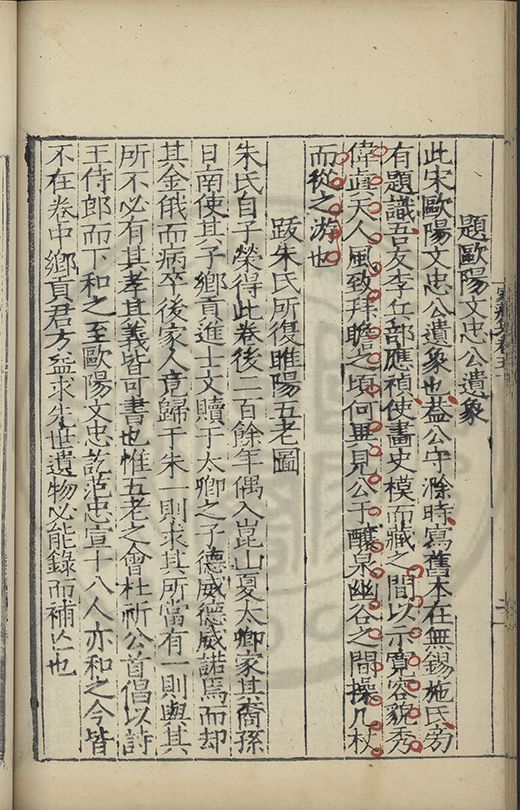 題歐陽文忠公遺象
此宋歐陽文忠公遺象也葢公守滁時寫舊本在無錫施氏旁
有題識吾友李兵部應禎使畫史模而藏之間以示寛容貌秀
偉眞天人風致拜瞻之頃何異見公于釀泉幽谷之間操几杖
而從之游也
跋朱氏所復睢陽五老圖
朱氏自子榮得此卷後二百餘年偶入崑山夏太卿家其裔孫
日南使其子鄉貢進士文贖于太卿之子德威德威諾焉而却
其金俄而病卒後家人竟歸于朱一則求其所當有一則與其
所不必有其孝其義皆可書也惟五老之會杜祁公首倡以詩
王侍郎而下和之至歐陽文忠訖范忠宣十八人亦和之今皆
不在卷中鄉貢君方益求先世遺物必能錄而補之也